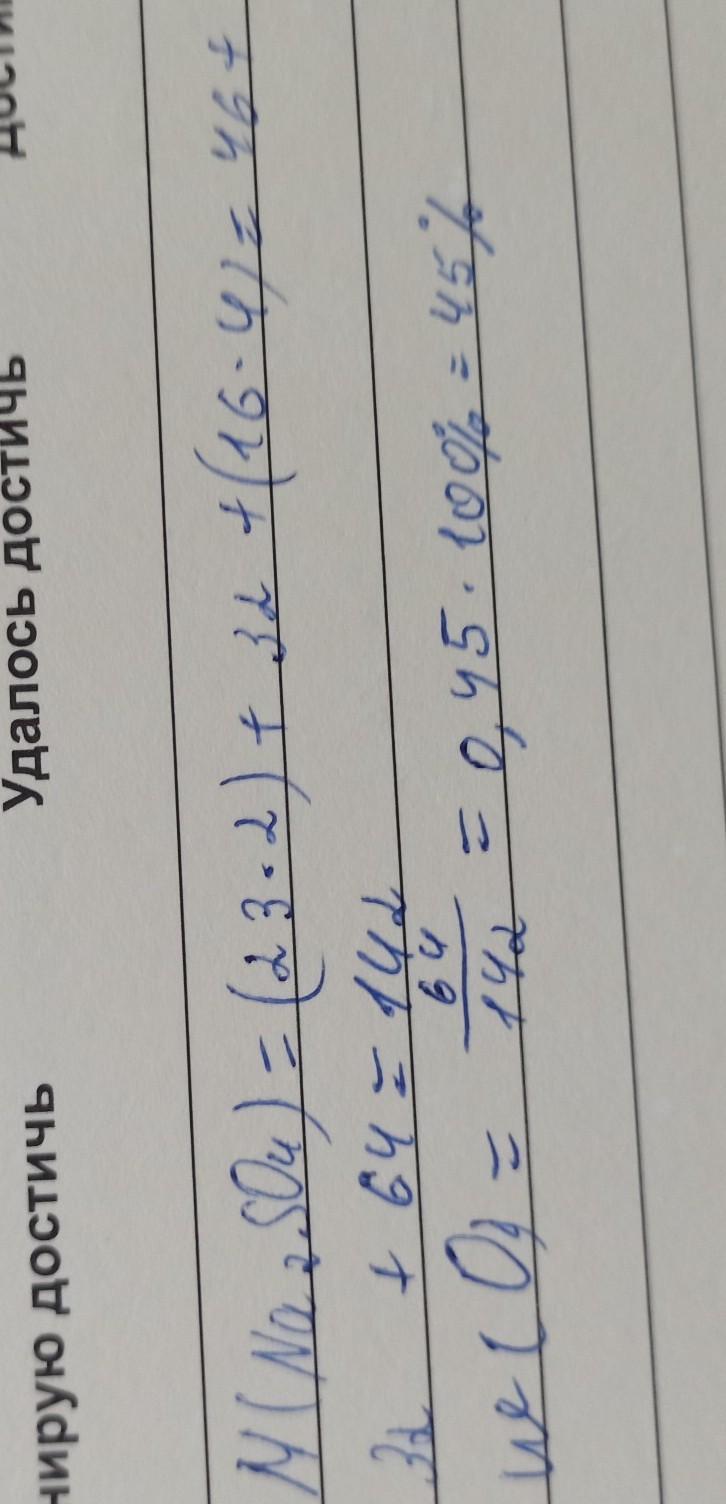 нирую достичь Удалось достичь
M(Na₂SO₄) = (23·2) + 32 + (16·4) = 46 +
32 + 64 = 142
w(O) = 64/142 = 0,45 · 100% = 45%